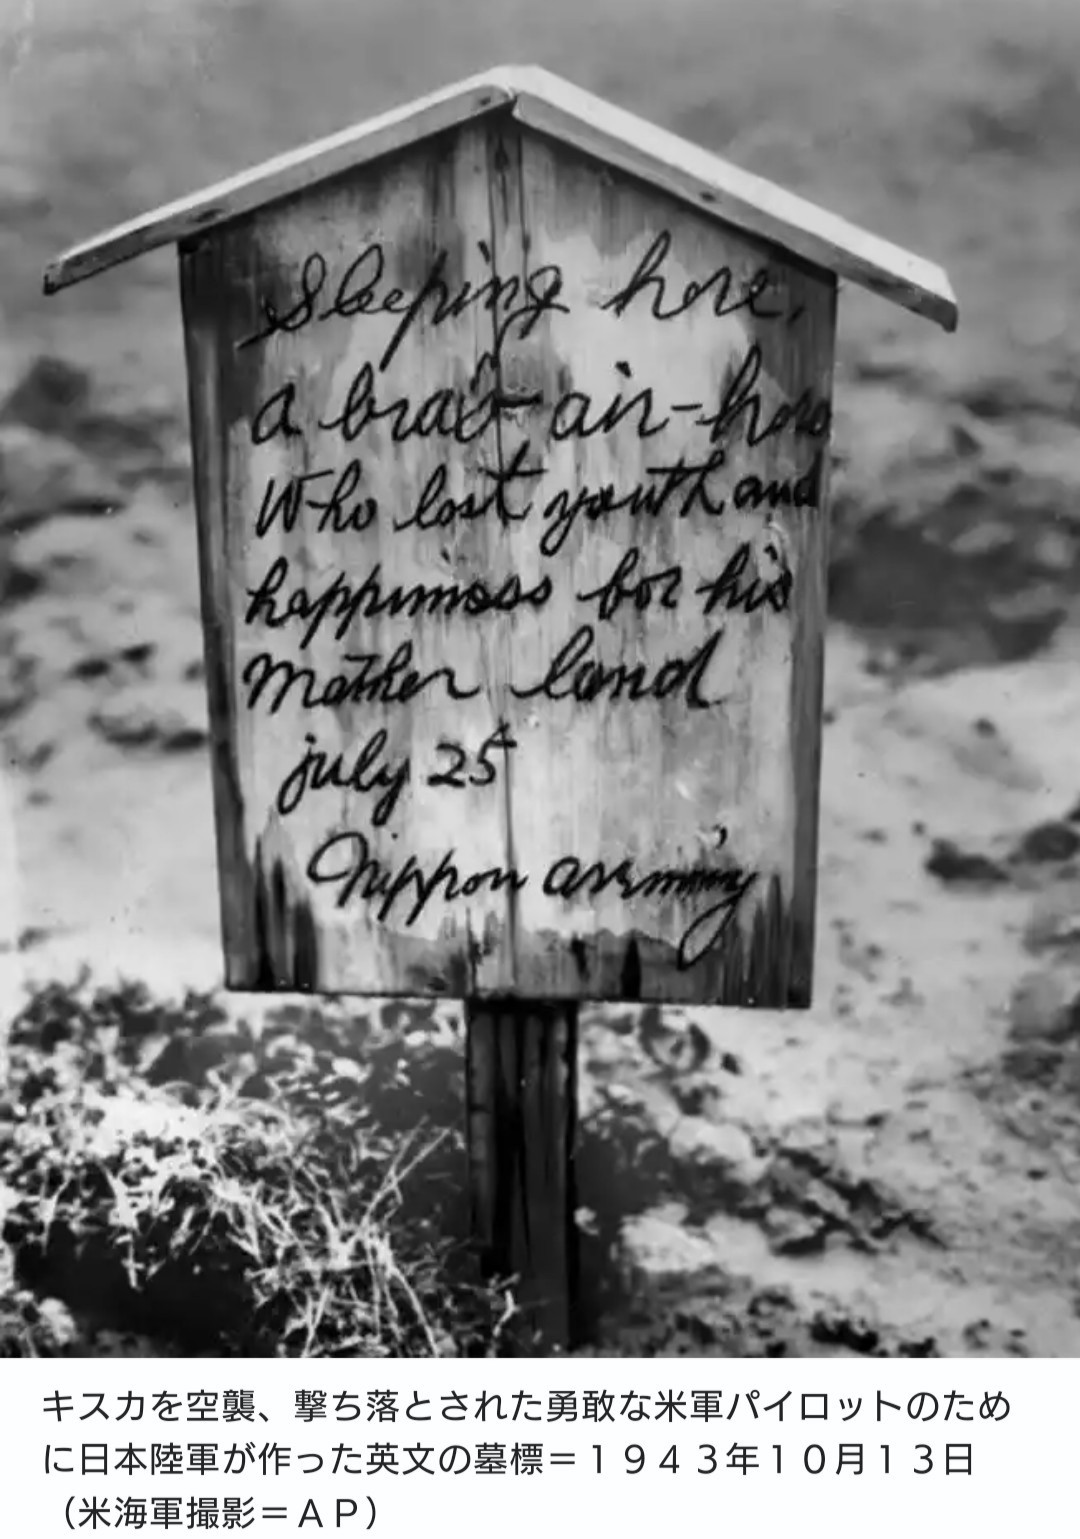 Sleeping here,
a brave air-hero
Who lost youth and
happiness for his
Mother land
july 25
Nippon army
キスカを空襲、撃ち落とされた勇敢な米軍パイロットのため
に日本陸軍が作った英文の墓標＝１９４３年１０月１３日
（米海軍撮影＝ＡＰ）